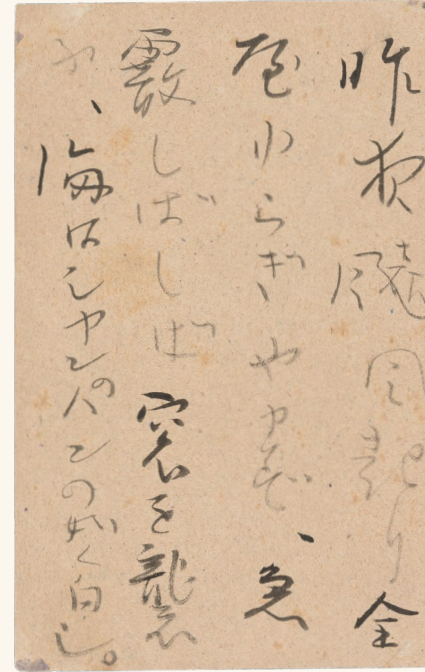 昨夜風起り全
屋ゆらぎやまず、急
霰しばしば窓を襲
ふ、海はシャンパンの如く白し。